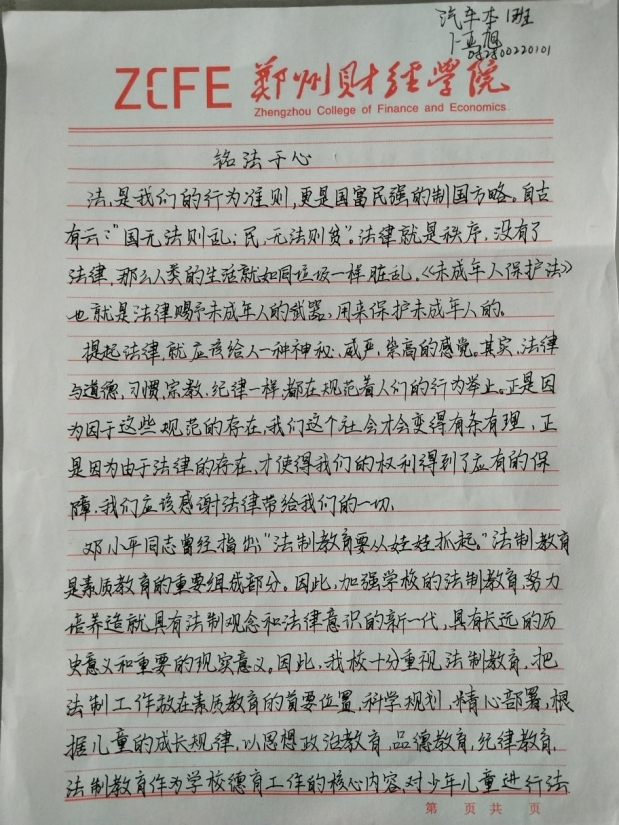 汽车本1班
卜亚旭
082800220101
ZCFE 郑州财经学院
Zhengzhou College of Finance and Economics
铭法于心
法,是我们的行为准则,更是国富民强的制国方略。自古
有云:“国无法则乱;民,无法则贫”。法律就是秩序,没有了
法律,那么人类的生活就如同垃圾一样脏乱,《未成年人保护法》
也就是法律赐予未成年人的武器,用来保护未成年人的。
提起法律,就应该给人一种神秘,威严,崇高的感觉。其实,法律
与道德,习惯,宗教,纪律一样,都在规范着人们的行为举止。正是因
为因于这些规范的存在,我们这个社会才会变得有条有理,正
是因为由于法律的存在,才使得我们的权利得到了应有的保
障,我们应该感谢法律带给我们的一切,
邓小平同志曾经指出:“法制教育要从娃娃抓起。”法制教育
是素质教育的重要组成部分。因此,加强学校的法制教育,努力
培养造就具有法制观念和法律意识的新一代,具有长远的历
史意义和重要的现实意义。因此,我校十分重视法制教育,把
法制工作放在素质教育的首要位置,科学规划,精心部署,根
据儿童的成长规律,以思想政治教育,品德教育,纪律教育,
法制教育作为学校德育工作的核心内容,对少年儿童进行法
第 页 共 页